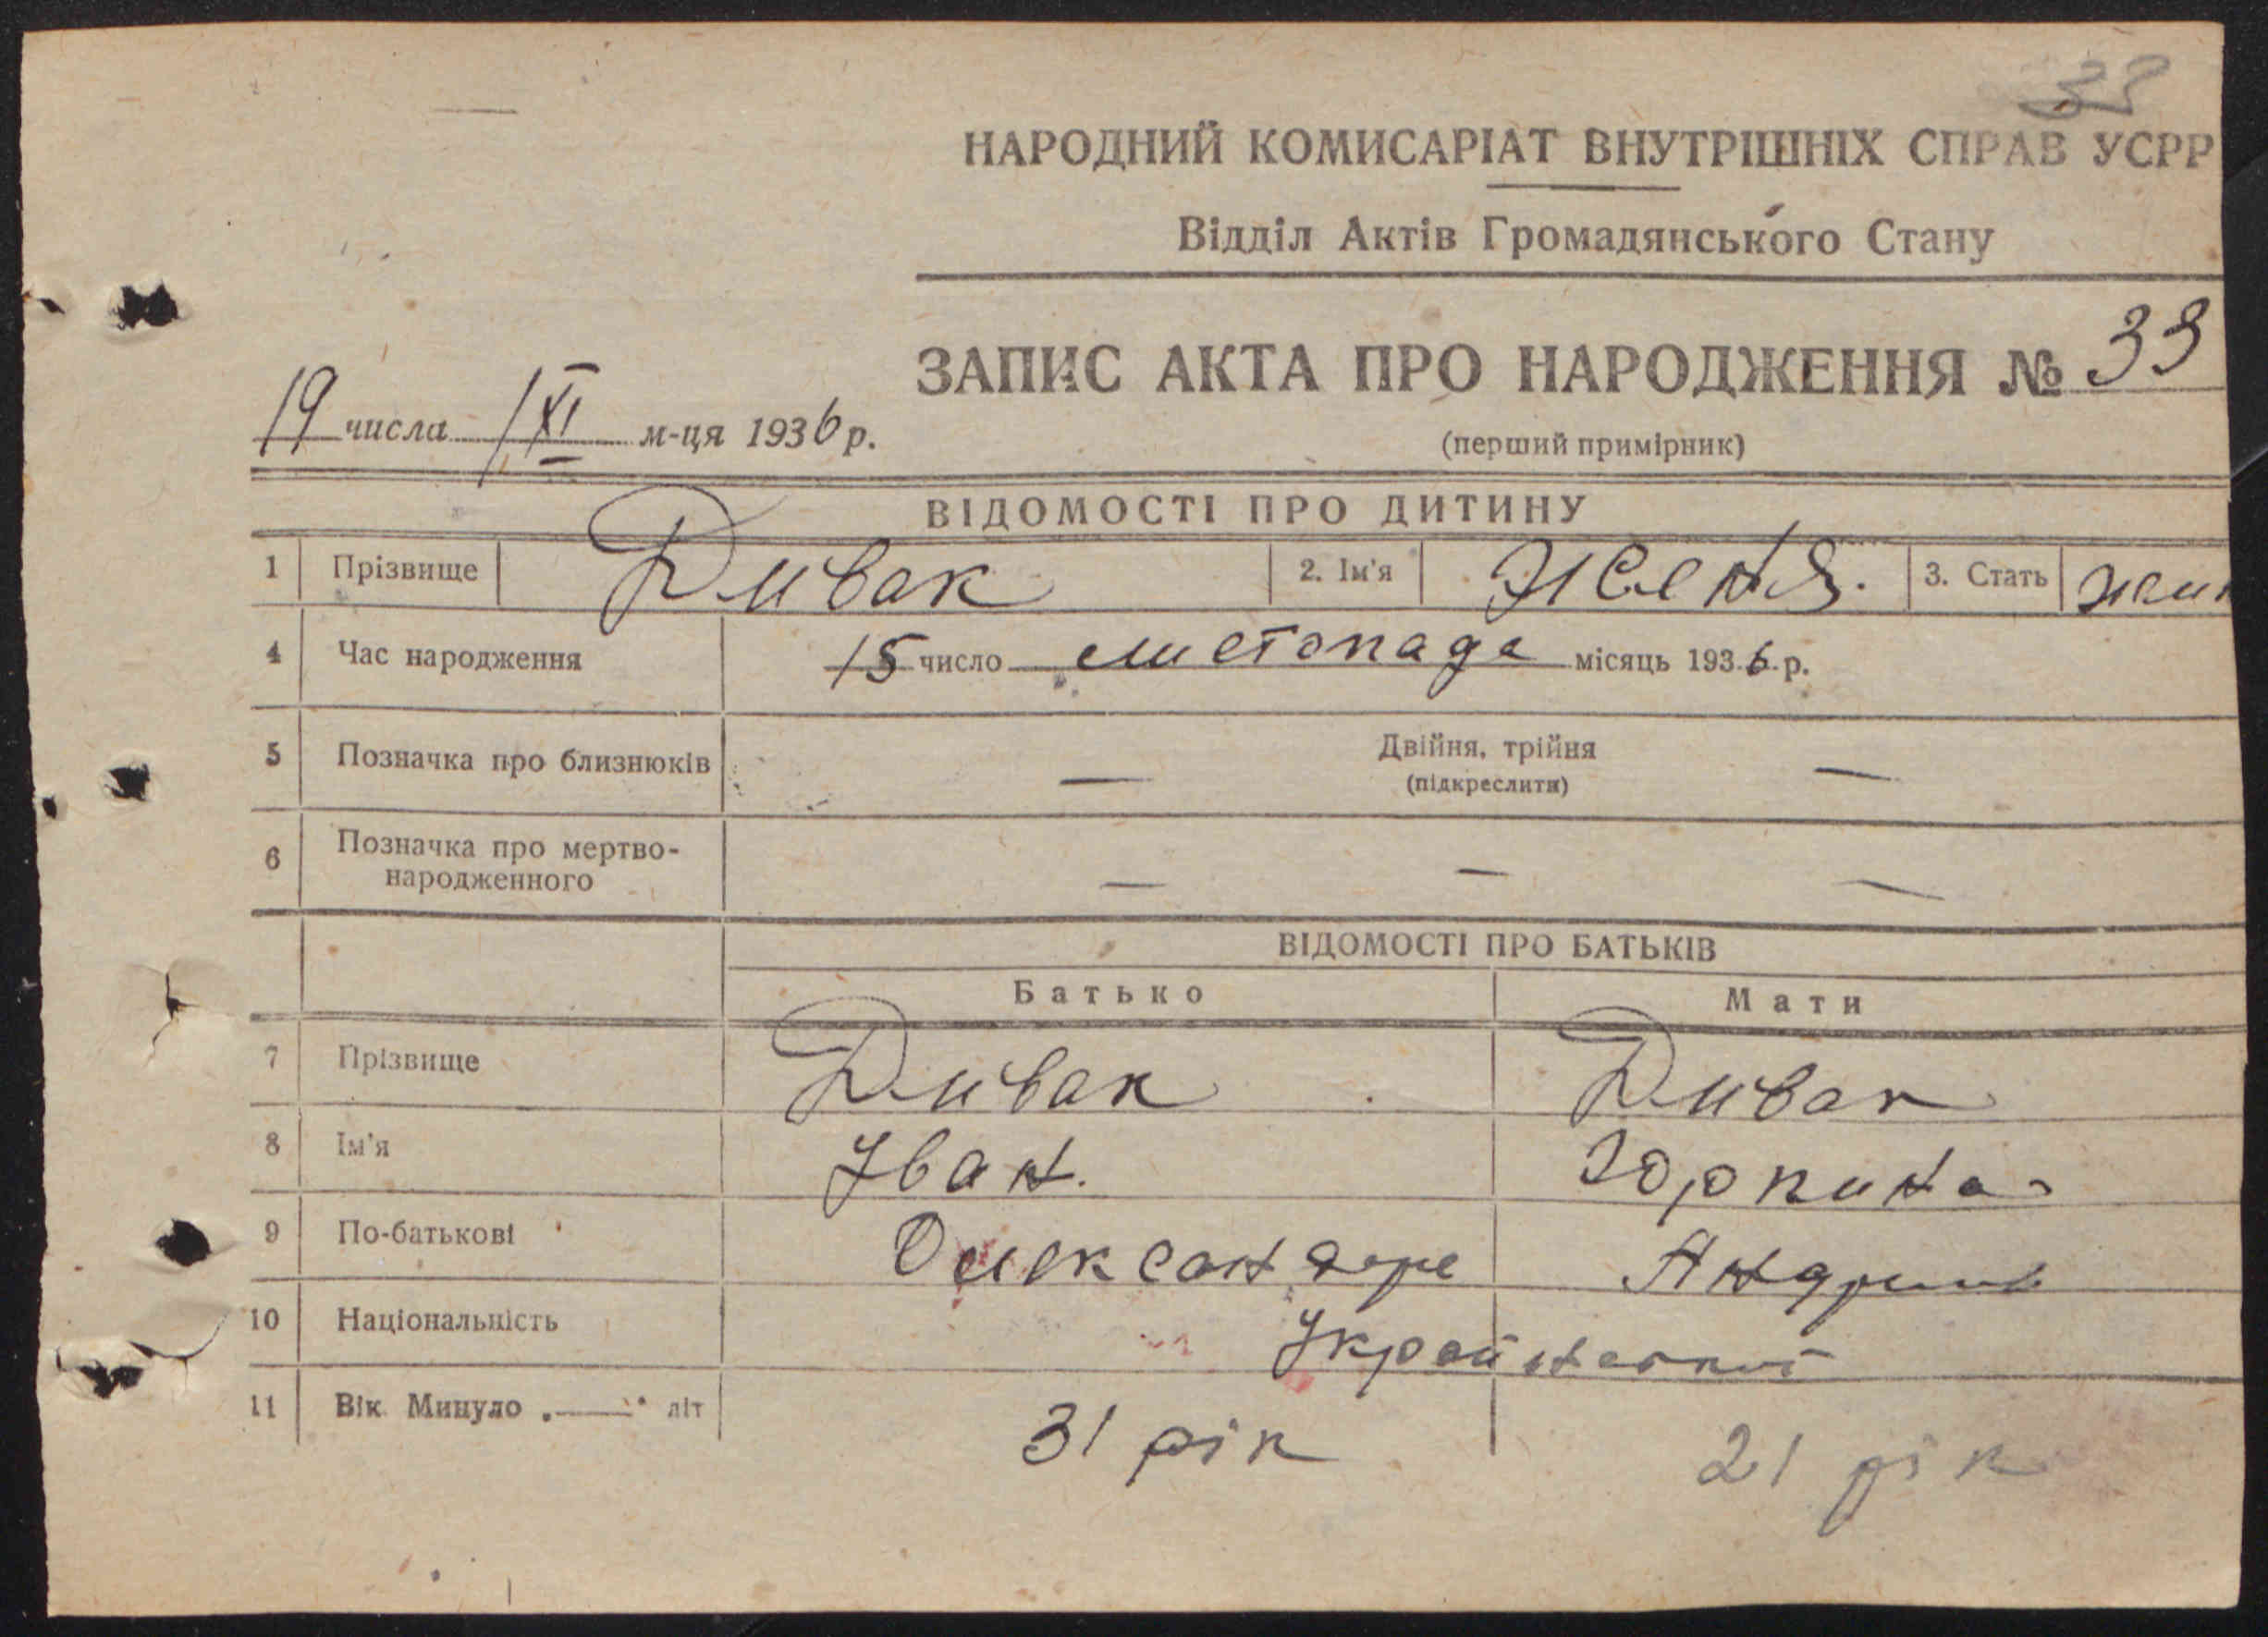 33
НАРОДНИЙ КОМИСАРІАТ ВНУТРІШНІХ СПРАВ УСРР
Відділ Актів Громадянського Стану
ЗАПИС АКТА ПРО НАРОДЖЕННЯ № 33
19 числа /XI м-ця 1936 р.
(перший примірник)
ВІДОМОСТІ ПРО ДИТИНУ
1 Прізвище Дивак 2. Ім'я Женя. 3. Стать жін
4 Час народження 15 число листопада місяць 1936 р.
5 Позначка про близнюків — Двійня, трійня —
(підкреслити)
6 Позначка про мертво-
народженного — — —
ВІДОМОСТІ ПРО БАТЬКІВ
Батько Мати
7 Прізвище Дивак Дивак
8 Ім'я Іван. Юркина
9 По-батькові Олександро
10 Національність
11 Вік Минуло „——" літ 31 рік 21 рік